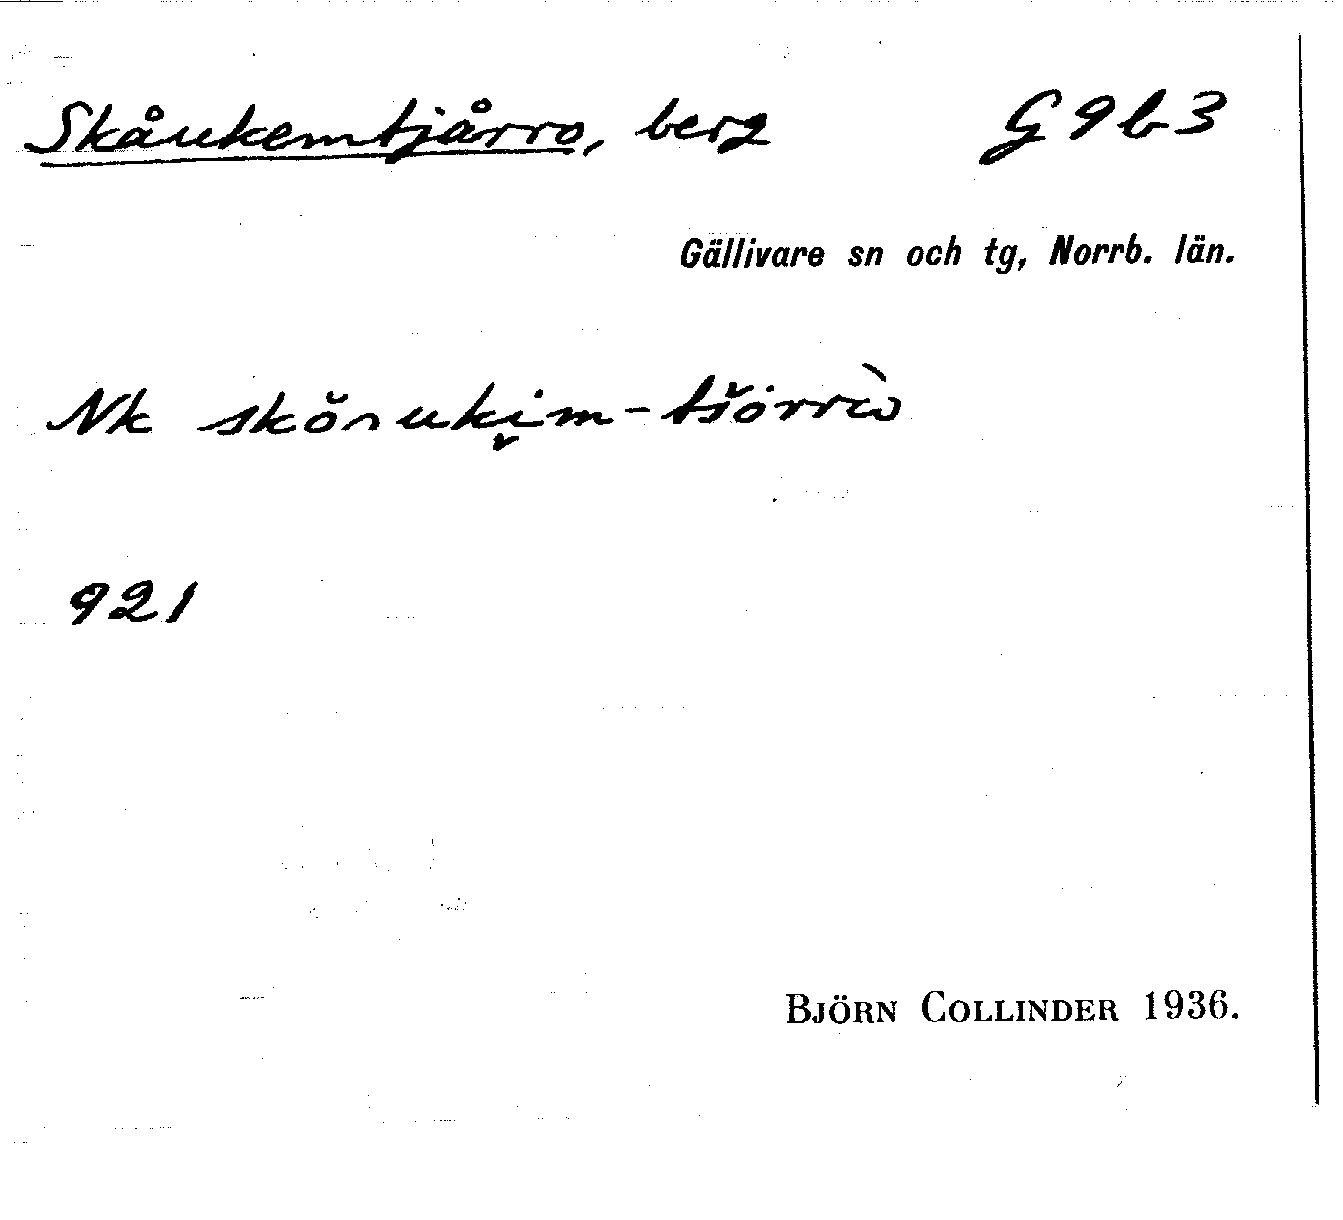 Skåukemtjårro, berg G9b3
Gällivare sn och tg, Norrb. län.
Nk
921
BJÖRN COLLINDER 1936.